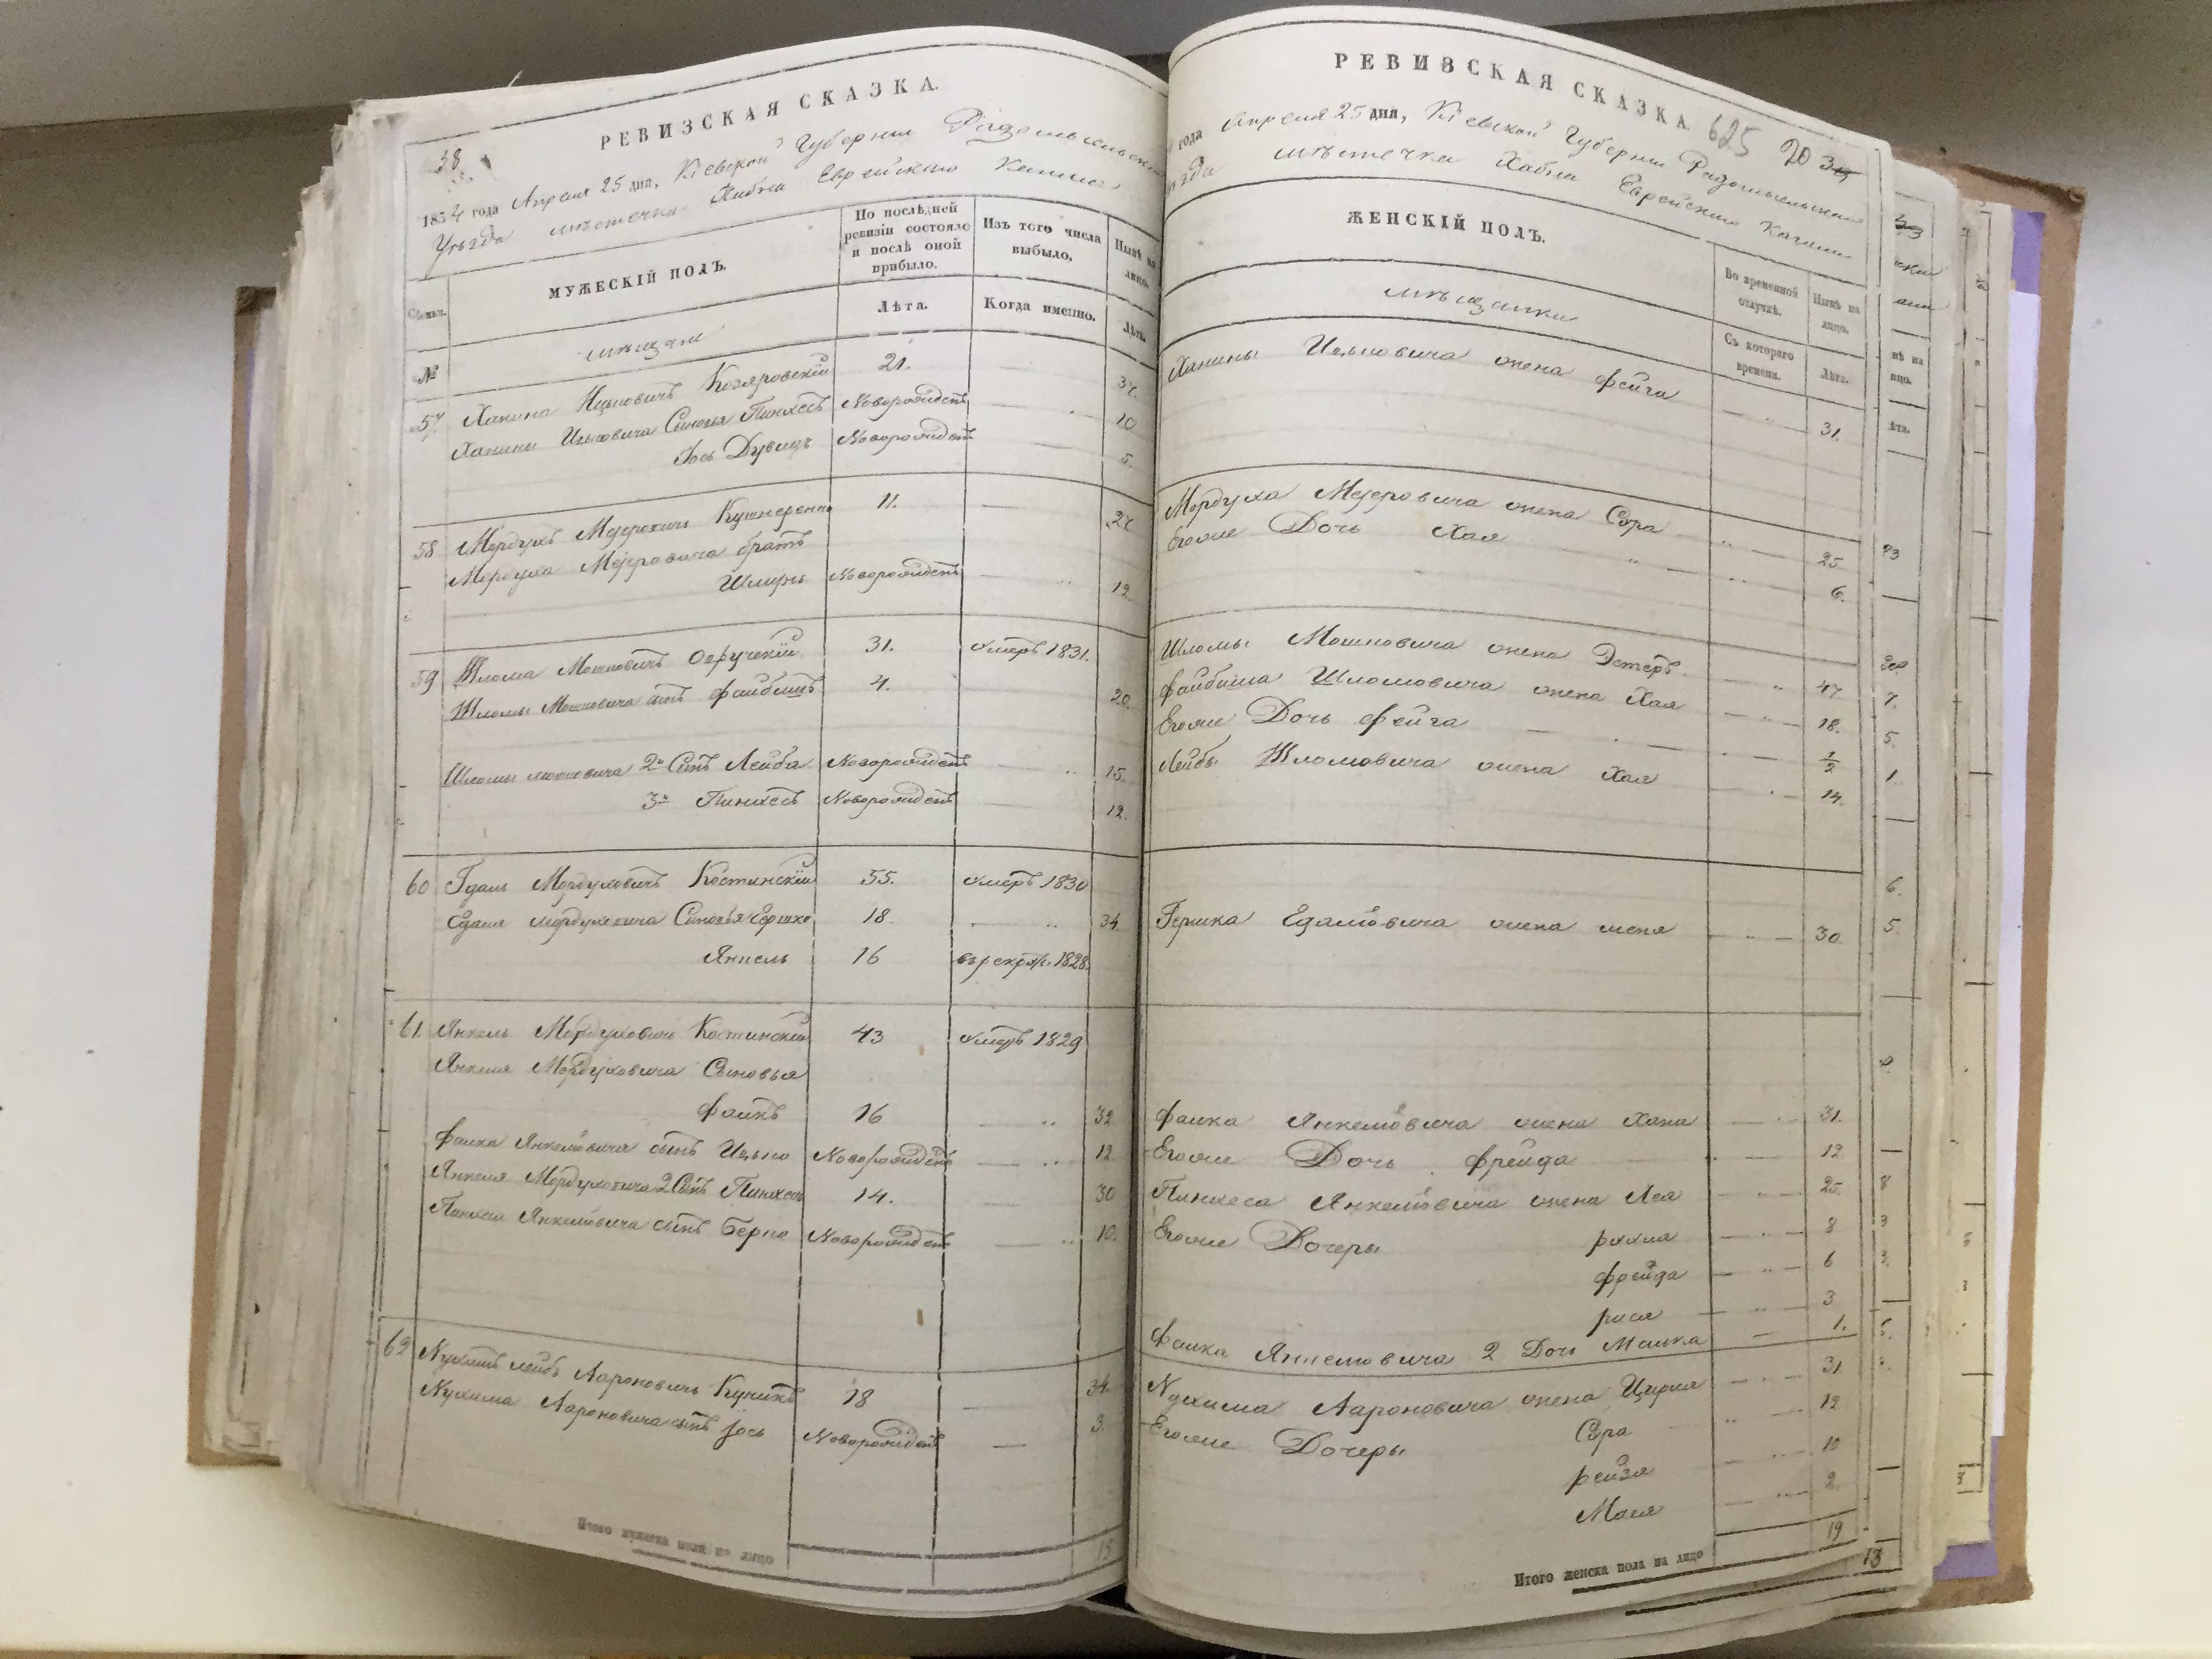 38
РЕВИЗСКАЯ СКАЗКА.
1834 года Апреля 25 дня, Кіевской Губерніи Радомысльского
Уѣзда мѣстечка Хабна Еврейскаго Кагала
Семьи.
МУЖЕСКІЙ ПОЛЪ.
По послѣдней ревизіи состояло и послѣ оной прибыло.
Изъ того числа выбыло.
Нынѣ на лицо.
№
мѣщане
Лѣта.
Когда именно.
Лѣта.
57 Ханина Ицковичъ Козяровскій 21. 37.
Ханины Ицковича Сыновья Пинхесъ Новорожденъ 10
Іось Дувидъ Новорожденъ 5.
58 Мордухъ Меjеровичъ Кушнеренко 11. 27.
Мордуха Меjеровича братъ
Шмиръ Новорожденъ 12.
59 Шлома Мошковичъ Овручскій 31. умеръ 1831.
Шломы Мошковича сынъ Файбишъ 4. 20.
Шломы Мошковича 2й Сынъ Лейба Новорожденъ 15.
3й Пинхесъ Новорожденъ 12.
60 Гдаль Мордуховичъ Костинскій 55. умеръ 1830
Гдаля Мордуховича Сыновья Гершко 18. 34.
Янкель 16 въ рекрут. 1828.
61. Янкель Мордуховичъ Костинскій 43 умеръ 1829
Янкеля Мордуховича Сыновья
Фаикъ 16 32
Фаика Янкелѣвича сынъ Ицько Новорожденъ 12
Янкеля Мордуховича 2 Сынъ Пинхесъ 14. 30
Пинхеса Янкелѣвича сынъ Берко Новорожденъ 10.
62 Нухимъ Лейбъ Аароновичъ Куникъ 18 34.
Нухима Аароновича сынъ Jось Новорожденъ 3.
Итого мужеска пола на лицо 15
РЕВИЗСКАЯ СКАЗКА.
625 20
года Апреля 25 дня, Кіевской Губерніи Радомысльского
уѣзда мѣстечка Хабна Еврейскаго Кагала
ЖЕНСКІЙ ПОЛЪ.
Во временной отлучкѣ.
Нынѣ на лицо.
мѣщанки
Съ котораго времени.
Лѣта.
Ханины Ицьковича жена фейга 31.
Мордуха Меjеровича жена Сура 25.
Егоже Дочь Хая 6.
Шломы Мошковича жена Эстеръ 47.
Файбиша Шломовича жена Хая 18.
Егоже Дочь фейга 1/2
Лейбы Шломовича жена Хая 14.
Гершка Гдалѣвича жена 30.
Фаика Янкелѣвича жена Хана 31.
Егоже Дочь фрейда 12
Пинхеса Янкелѣвича жена Лея 25.
Егоже Дочеры рухля 8
фрейда 6
рися 3
Фаика Янкелевича 2 Дочь Малка 1.
Нухима Аароновича жена Цирля 31
Егоже Дочеры Сура 12
рейзя 10
Мася 2.
Итого женска пола на лицо 19
13